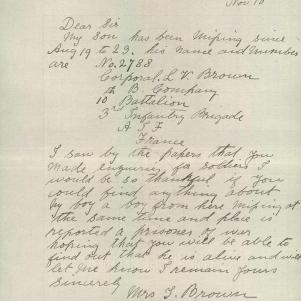 Nov 10
Dear Sir
My Son has been Missing since
Aug 19 to 23. his name and Number
are No. 2788
Corporal L. V. Brown
B. Company
10th Battalion
3rd Infantry Brigade
A I F
France
I saw by the papers that you
made inquiry for soldiers I
would be so thankful if you
could find anything about
my boy a boy from here Missing at
the same time and place is
reported a prisoner of war
hoping that you will be able to
find out that he is alive and will
let me know I remain yours
Sincerely
Mrs T. Brown